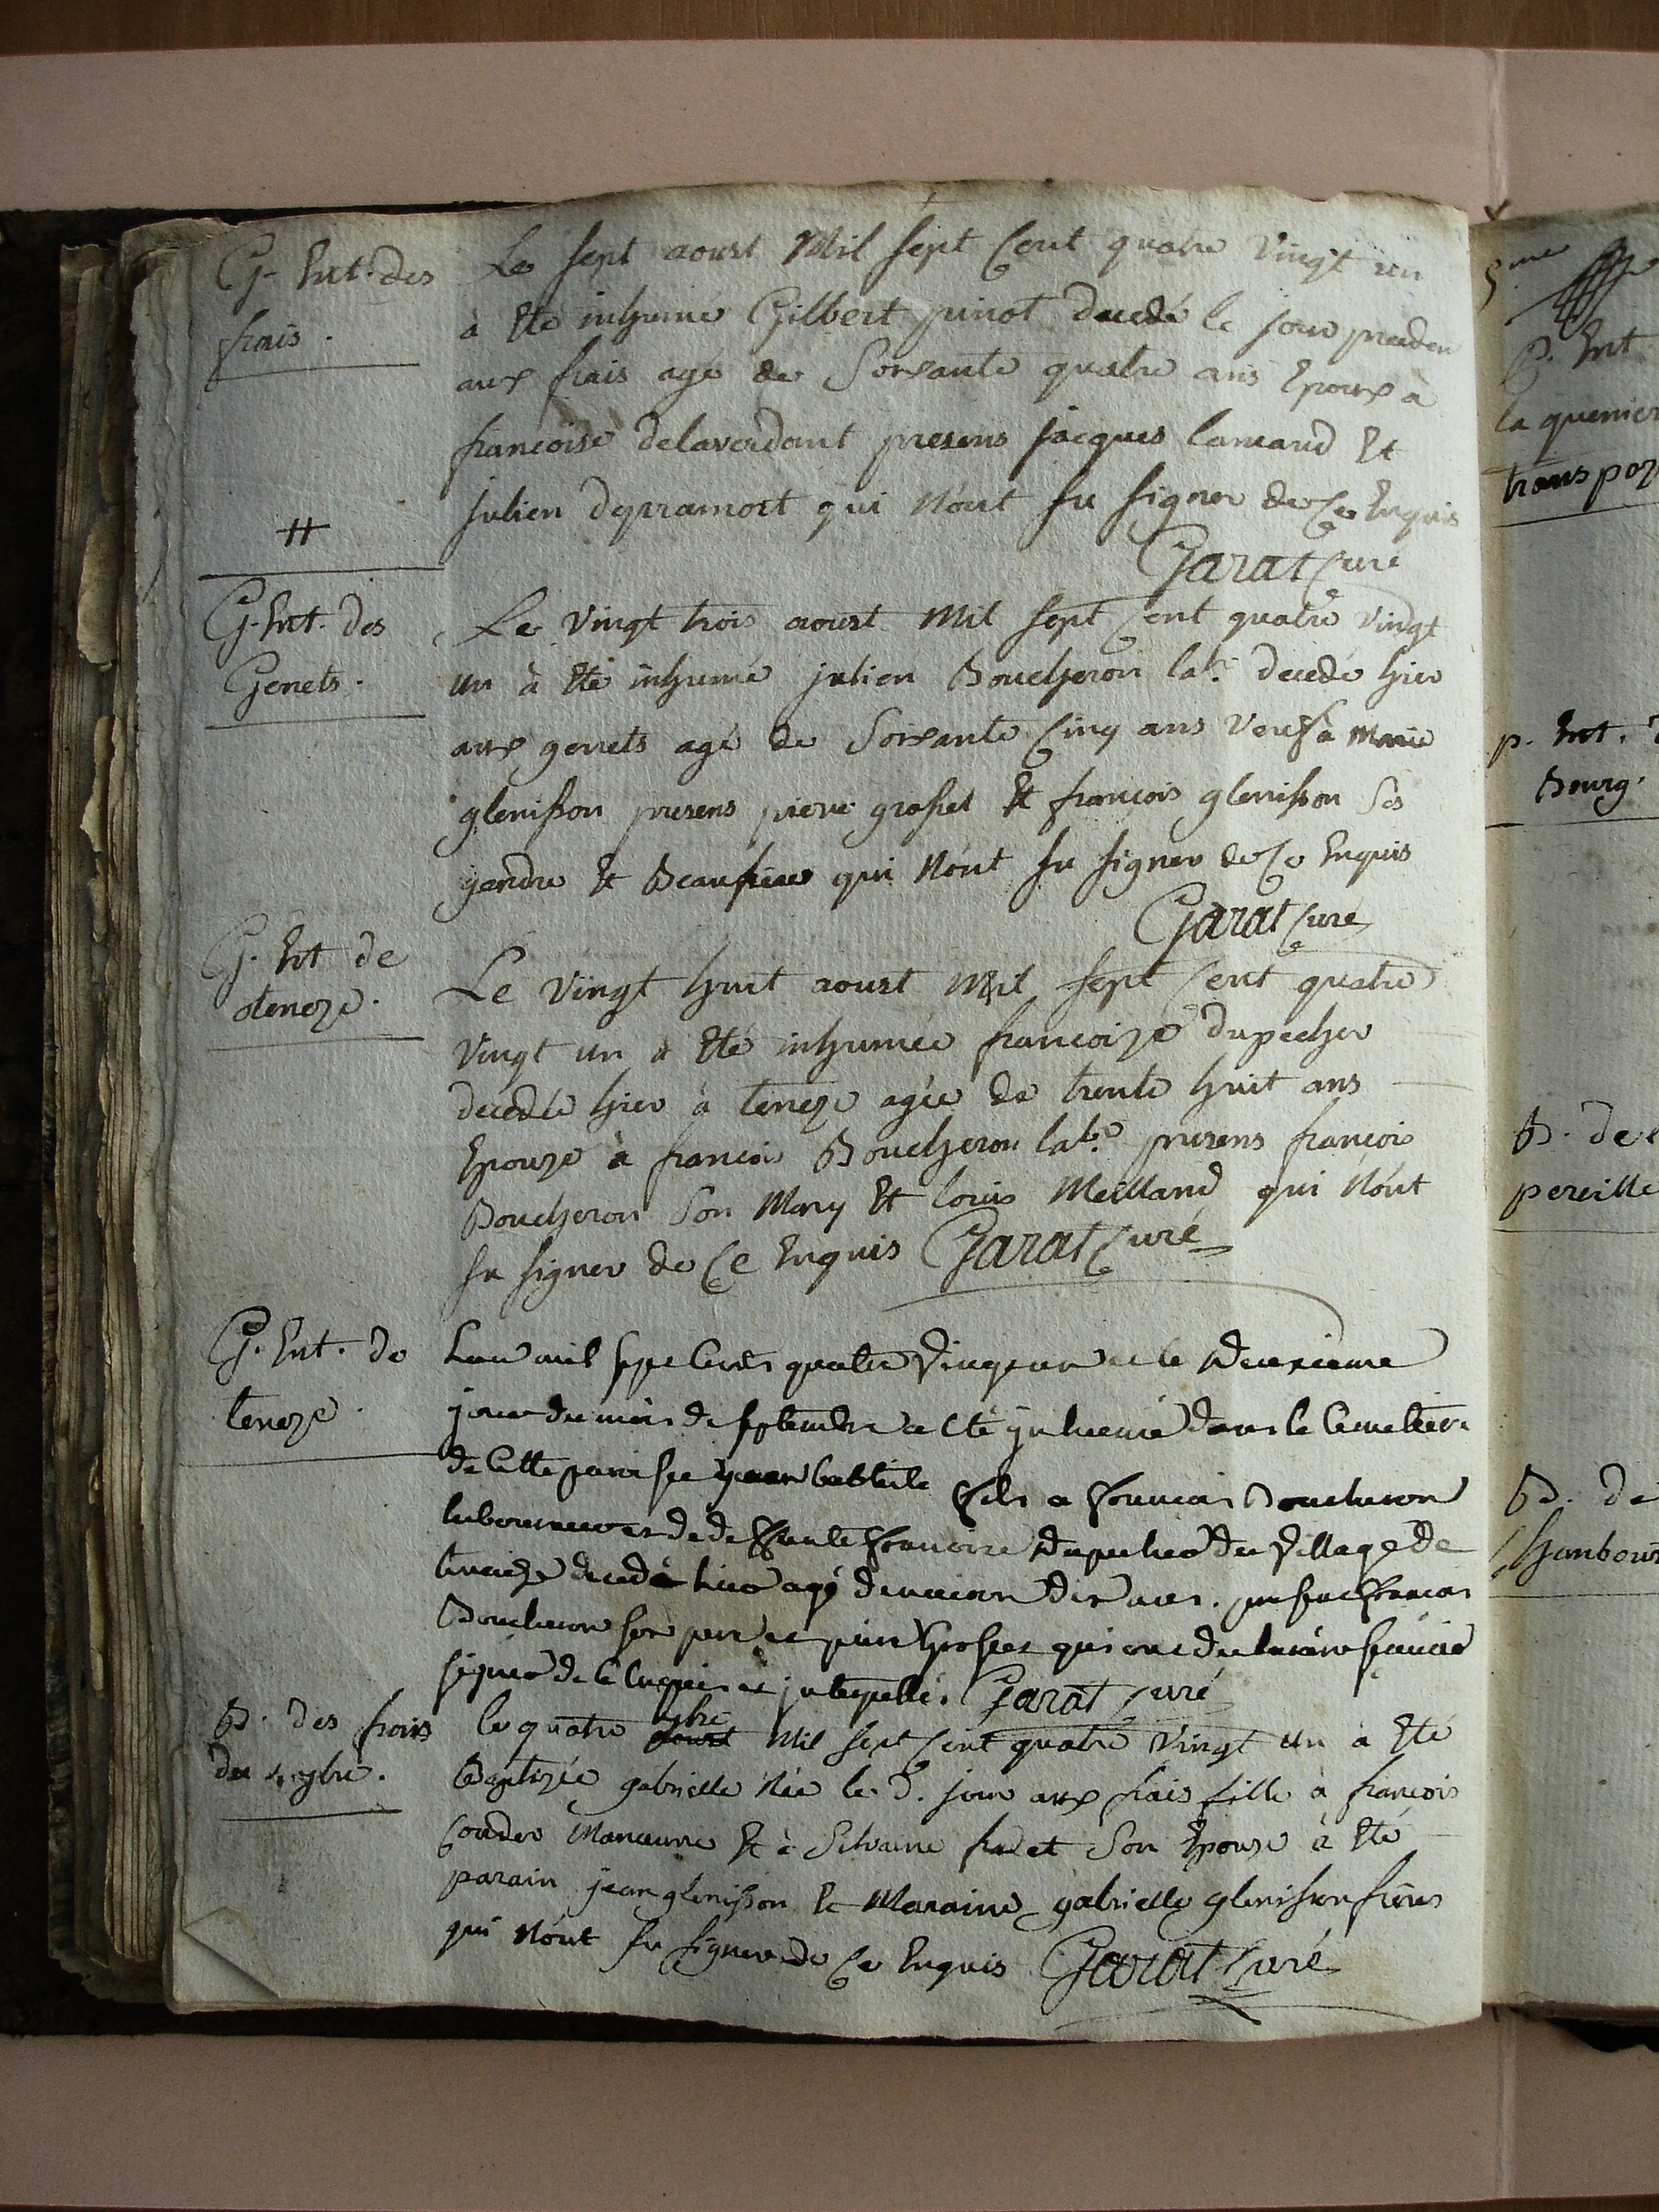 G. Ent. des
frais.
Le sept aoust Mil sept Cent quatre Vingt un
à Eté inhumé Gilbert pinot decedé le jour preceden
aux frais agé de Soixante quatre ans Epoux à
francoise delaverdant presens jacques lamand Et
julien depramort qui N'ont su signer de Ce Enquis
Garat Curé
G. Ent. des
Genets.
Le Vingt trois aoust Mil sept Cent quatre Vingt
un à Eté inhumé julien Boucheron lab.r decedé hier
aux genets agé de Soixante Cinq ans Veuf à Marie
glenisson presens pierre grosset Et françois glenisson Ses
gendre Et Beaufrere qui N'ont su signer de Ce Enquis
Garat Curé
G. Ent de
teneze.
Le Vingt huit aoust Mil sept Cent quatre
Vingt un à Eté inhumée francoize dupecher
decedée hier à teneze agée de trente huit ans
Epouze à francois Boucheron lab.r presens francois
Boucheron Son Mary Et louis Meilland qui N'ont
su signer de Ce Enquis Garat Curé
G. Ent. de
teneze.
Lan mil sept Cents quatre Vingt un et le Deuxieme
jour du mois de septembre a Eté ynhumé dans le Cemetiere
de Cette paroisse jean batiste fils a francois Boucheron
laboureur et de deffunte francoise Dupecher du Village de
decedé hier agé denviron Dix ans. present francois
Boucheron son pere et piere Grosset qui ont declaré ne scavoir
signer de Ce Enquis et jnterpellés Garat Curé
B. des frais
du 4 7bre.
le quatre 7bre Mil sept Cent quatre Vingt un à Eté
Baptizée gabrielle Née le d. jour aux frais fille à françois
Manœuvre Et à Silvaine fradet Son Epouze à Eté
parain jean glenisson Et Maraine gabrielle glenisson
qui N'ont su signer de Ce Enquis Garat Curé
5.me
P. Ent
la quenier
transpor
p. Ent.
Bourg.
B. de
pereille
B. de
Chanbour